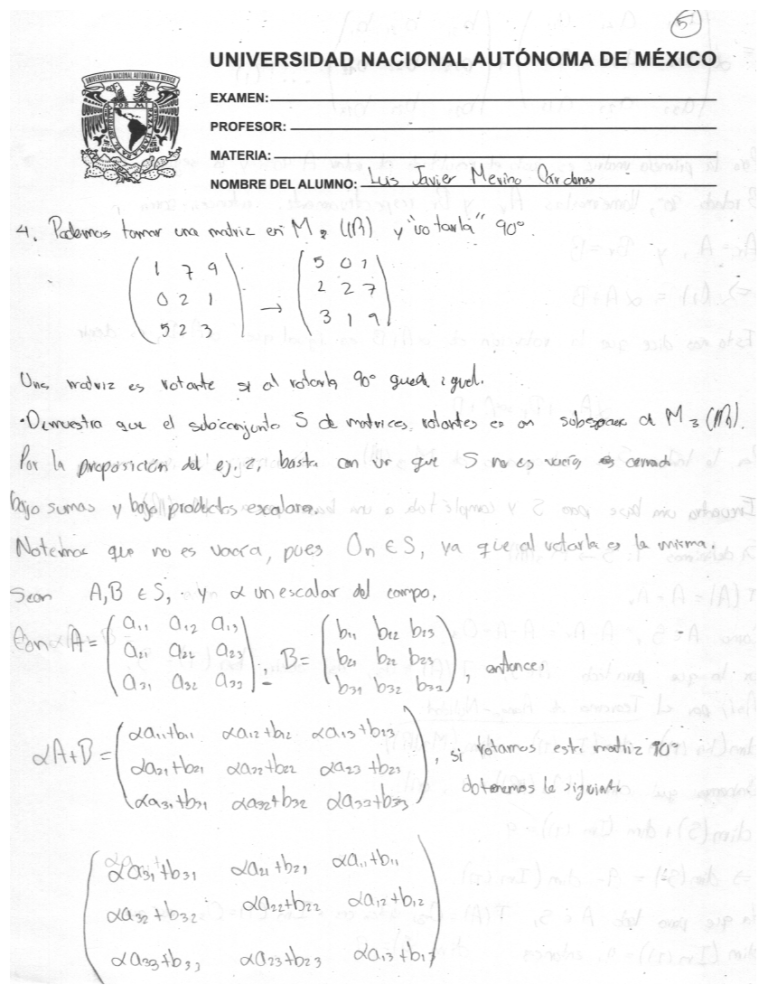 5
UNIVERSIDAD NACIONAL AUTÓNOMA DE MÉXICO
EXAMEN:
PROFESOR:
MATERIA:
NOMBRE DEL ALUMNO: Luis Javier Merino Cárdenas
4. Podemos tomar una matriz en M₃ (ℝ) y "rotarla" 90°.
( 1 7 9 ; 0 2 1 ; 5 2 3 ) → ( 5 0 1 ; 2 2 7 ; 3 1 9 )
Una matriz es rotante si al rotarla 90° queda igual.
·Demuestra que el subconjunto S de matrices rotantes es un subespacio de M₃ (ℝ).
Por la proposición del ej. 2, basta con ver que S no es vacío es cerrado
bajo sumas y bajo productos escalares.
Notemos que no es vacía, pues On ∈ S, ya que al rotarla es la misma.
Sean A, B ∈ S, y α un escalar del campo,
Con A = ( a₁₁ a₁₂ a₁₃ ; a₂₁ a₂₂ a₂₃ ; a₃₁ a₃₂ a₃₃ ), B = ( b₁₁ b₁₂ b₁₃ ; b₂₁ b₂₂ b₂₃ ; b₃₁ b₃₂ b₃₃ ), entonces
αA+B = ( αa₁₁+b₁₁ αa₁₂+b₁₂ αa₁₃+b₁₃ ; αa₂₁+b₂₁ αa₂₂+b₂₂ αa₂₃+b₂₃ ; αa₃₁+b₃₁ αa₃₂+b₃₂ αa₃₃+b₃₃ ), si rotamos esta matriz 90°
obtenemos la siguiente
( αa₃₁+b₃₁ αa₂₁+b₂₁ αa₁₁+b₁₁
αa₃₂+b₃₂ αa₂₂+b₂₂ αa₁₂+b₁₂
αa₃₃+b₃₃ αa₂₃+b₂₃ αa₁₃+b₁₃ )